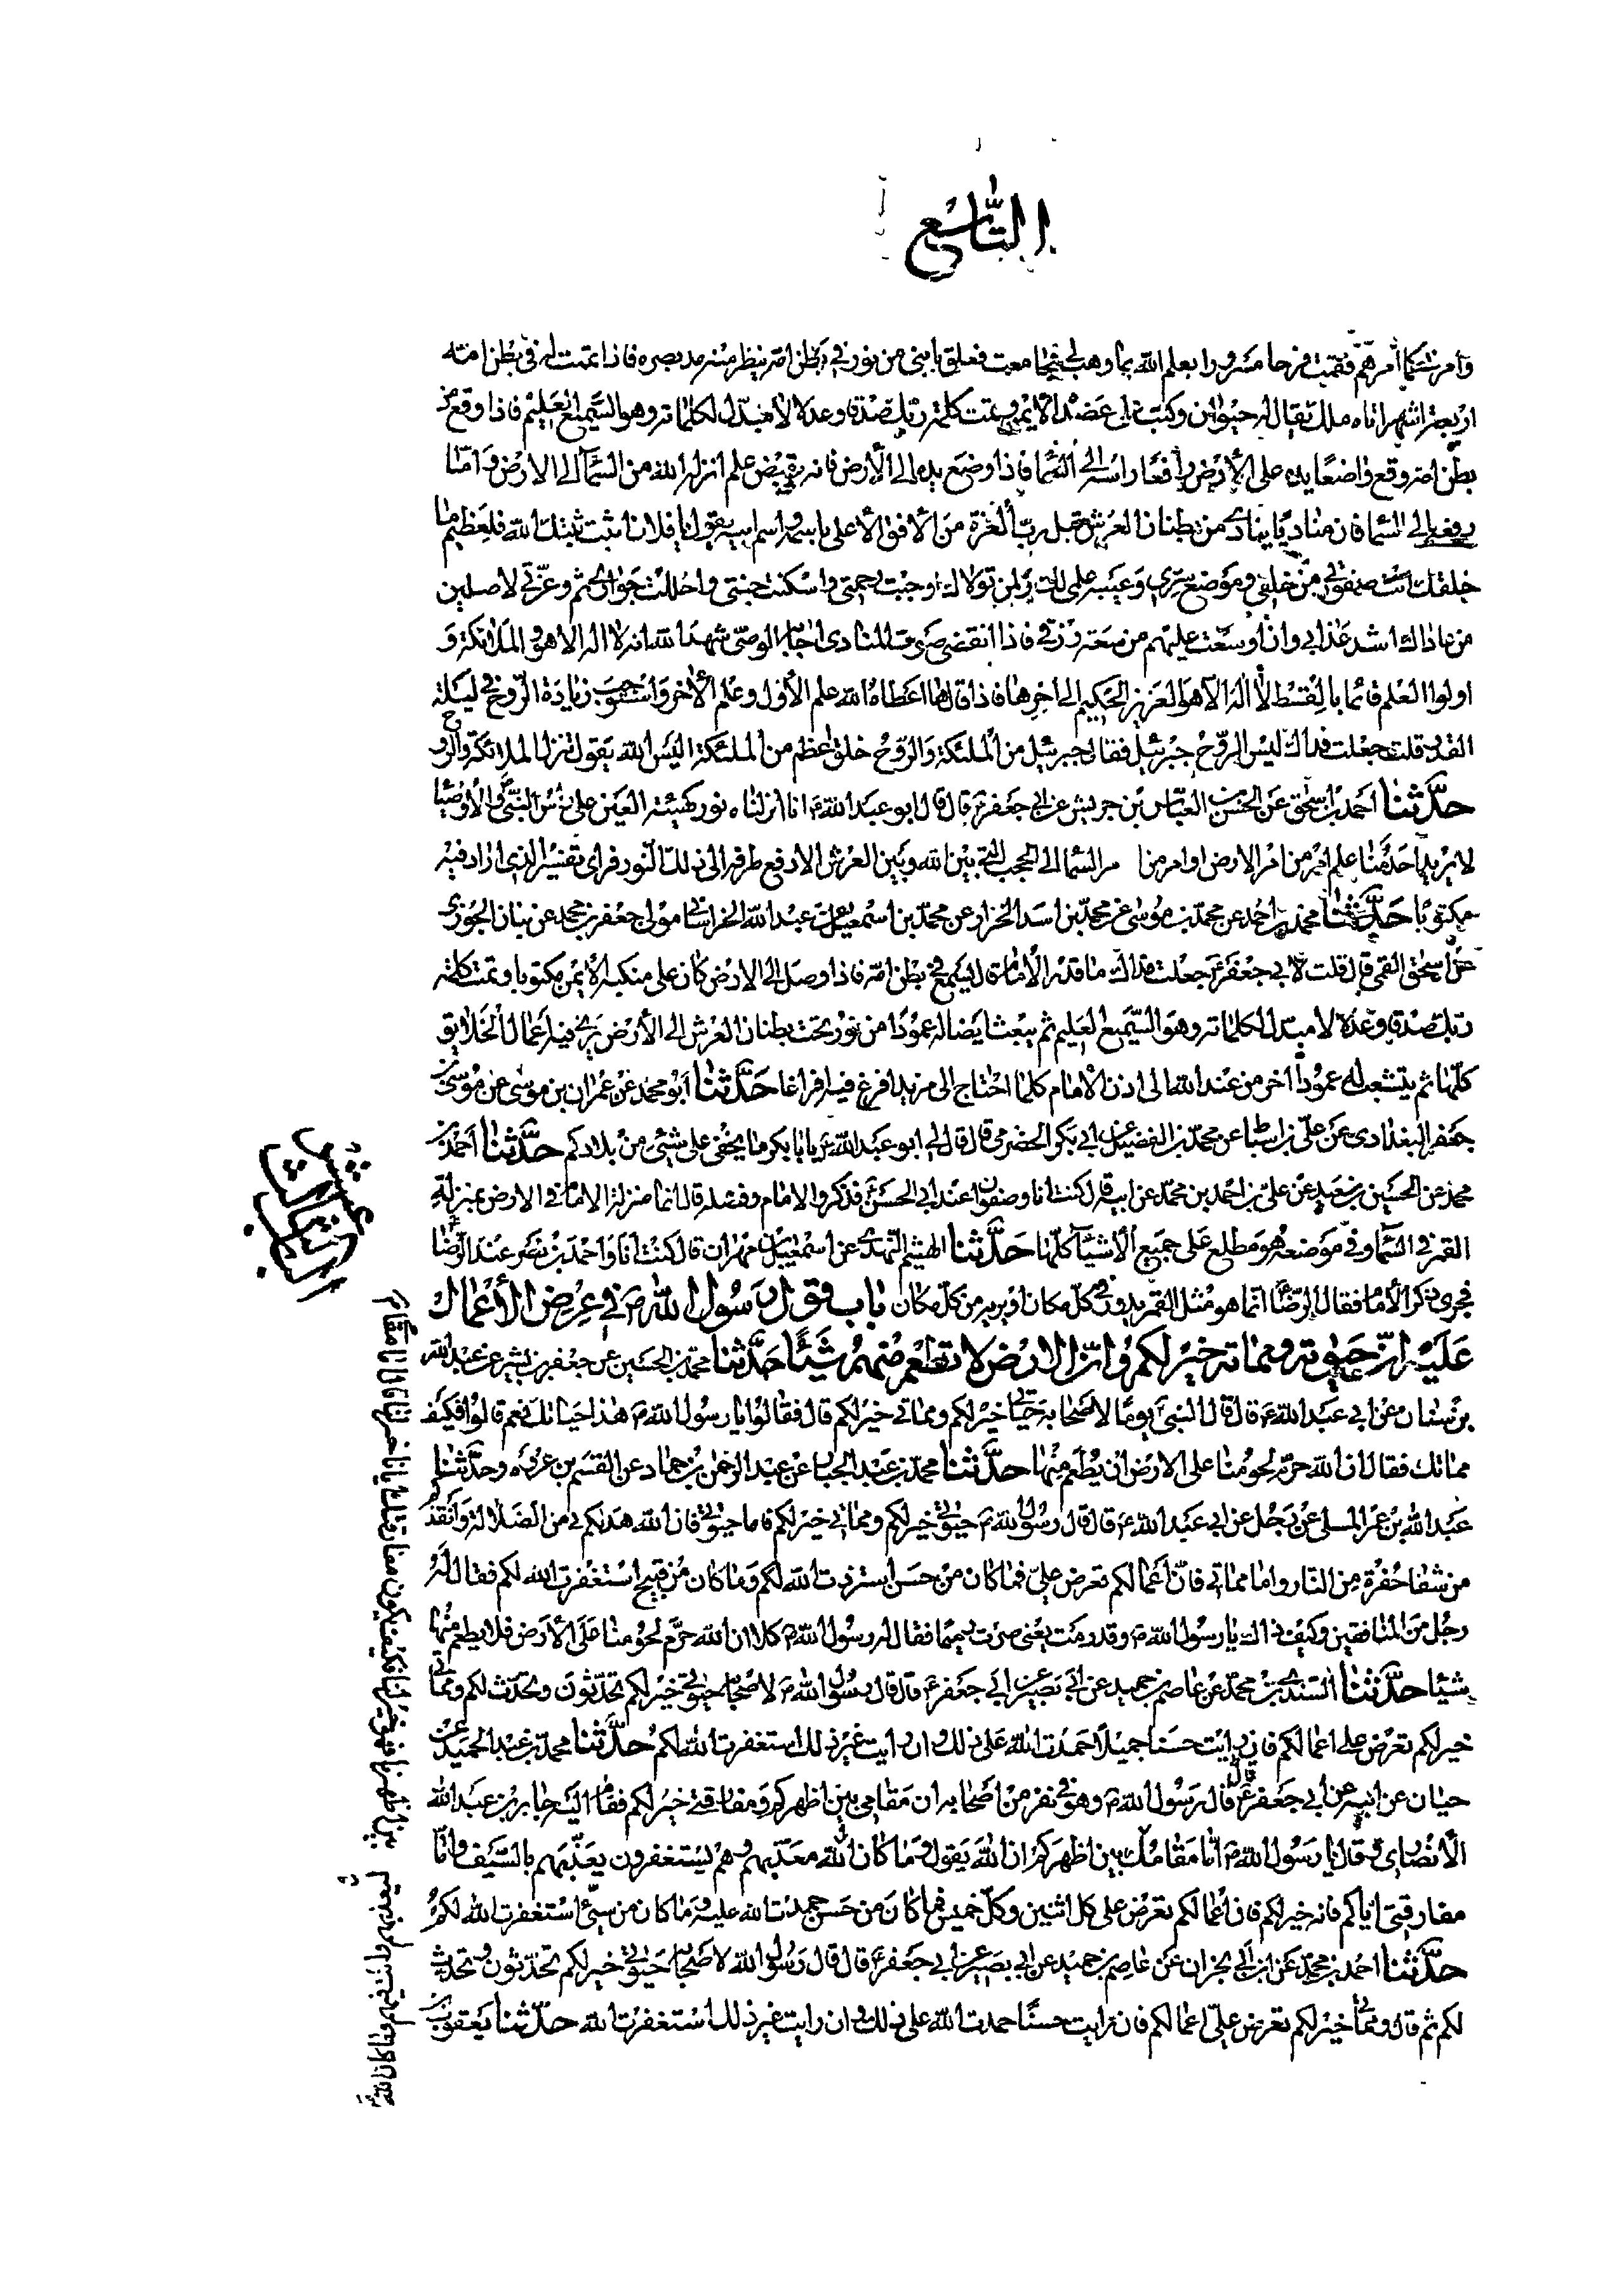 التاسع
وأمرت كما أمرهم فقمت فرحا مسرورا بعلم الله بما وهب لي فجامعت فعلق بابني من نور في بطن امه ينظر منه مد بصره فاذا تمت له في بطن امه
اربعة اشهر اتاه ملك يقال له حيوان وكتب على عضده الايمن وتمت كلمة ربك صدقا وعدلا لا مبدل لكلماته وهو السميع العليم فاذا وقع من
بطن امه وقع واضعا يده على الأرض رافعا راسه الى السما فاذا وضع يده الى الأرض فانه يقبض علم انزله الله من السما الى الارض واما
رفعه الى السما فان مناديا ينادي من بطنان العرش من قبل رب العزة من الافق الاعلى باسمه واسم ابيه يقول يا فلان اثبت ثبتك الله فلعظيم ما
خلقتك انت صفوتي من خلقي وموضع سري وعيبة علمي لك ولمن تولاك اوجبت رحمتي واسكنت جنتي واحللت جواري ثم وعزتي لاصلين
من عاداك اشد عذابي وان اوسعت عليهم من سعة رزقي فاذا انقضى صوت المنادى اجابه الوصي شهد الله انه لا اله الا هو والملائكة و
اولوا العلم قائما بالقسط لا اله الا هو العزيز الحكيم الى اخرها فاذا قالها اعطاه الله علم الأول وعلم الاخر واستوجب زيادة الروح في ليلة
القدر قلت جعلت فداك ليس الروح جبرئيل فقال جبرئيل من الملئكة والروح خلق اعظم من الملئكة اليس الله يقول تنزل الملائكة والروح
حدثنا احمد بن اسحق عن الحسن بن العباس بن جريش عن ابي جعفر ع قال قال ابو عبد الله ع انا انزلناه نور كهيئة العين على راس النبي والاوصيا
لا يريد احد منا علم امر من امر الارض او امر من امر السما الى الحجب التي بين الله وبين العرش الا رفع طرفه الى ذلك النور فراى تفسير الذي اراد فيه
مكتوبا حدثنا محمد بن احمد عن محمد بن موسى عن محمد بن اسد الخزاز عن محمد بن اسمعيل عن عبد الله الخراساني مولى جعفر بن محمد عن بنان الجوزي
عن اسحق القمي قال قلت لابي جعفر ع جعلت فداك ما قدر الامام قال يسمع في بطن امه فاذا وصل الى الارض كان على منكبه الايمن مكتوبا وتمت كلمة
ربك صدقا وعدلا لا مبدل لكلماته وهو السميع العليم ثم يبعث ايضا له عمودا من نور تحت بطنان العرش الى الأرض يرى فيه اعمال الخلايق
كلها ثم يتشعب له عمود اخر من عند الله الى اذن الامام كلما احتاج الى مزيد افرغ فيه افراغا حدثنا ابو محمد عن عمران بن موسى عن موسى بن
جعفر البغدادى عن علي بن اسباط عن محمد بن الفضيل عن ابي بكر الحضرمي قال قال لي ابو عبد الله ع يا با بكر ما يخفى على شئ من بلادكم حدثنا احمد بن
محمد عن الحسين بن سعيد عن علي بن احمد بن محمد عن ابيه قال كنت انا وصفوان عند ابي الحسن ع فذكروا الامام وفضله قال انما منزلة الامام في الارض بمنزلة
القمر في السما وفي موضعه هو مطلع على جميع الاشيا كلها حدثنا الهيثم النهدي عن اسمعيل بن مهران قال كنت انا واحمد بن نصر عند الرضا ع
فجرى ذكر الامام فقال الرضا انما هو مثل القمر يدور في كل مكان او يرى من كل مكان باب في قول رسول الله ص في عرض الأعمال
عليه ان حيوته ومماته خير لكم وان الارض لا تطعم منهم شيئا حدثنا محمد بن الحسين عن جعفر بن بشير عن عبد الله
بن سنان عن ابي عبد الله ع قال قال النبي ص يوما لاصحابه حياتي خير لكم ومماتي خير لكم قال فقالوا يا رسول الله ص هذا حياتك نعم قالوا فكيف
مماتك فقال ان الله حرم لحومنا على الارض ان يطعم منها حدثنا محمد بن عبد الجبار عن عبد الرحمن بن حماد عن القسم بن عروه وحدثنا
عبد الله بن عمر المسلى عن رجل عن ابي عبد الله ع قال قال رسول الله ص حيوتي خير لكم ومماتي خير لكم فاما حيوتي فان الله هداكم بي من الضلالة وانقذكم
من شفا حفرة من النار واما مماتي فان اعمالكم تعرض علي فما كان من حسن استزدت الله لكم وما كان من قبيح استغفرت الله لكم فقال له
رجل من المنافقين وكيف ذاك يا رسول الله ص وقد رممت يعني صرت رميما فقال له رسول الله ص كلا ان الله حرم لحومنا على الأرض فلا يطعم منها
شيئا حدثنا السندي بن محمد عن عاصم بن حميد عن ابي بصير عن ابي جعفر ع قال قال رسول الله ص لاصحابه حيوتي خير لكم تحدثون ونحدث لكم ومماتي
خير لكم تعرض علي اعمالكم فان رايت حسنا جميلا حمدت الله على ذلك وان رايت غير ذلك استغفرت الله لكم حدثنا محمد بن عبد الحميد عن
حيان عن ابيه عن ابي جعفر ع قال قال رسول الله ص وهو في نفر من اصحابه ان مقامي بين اظهركم ومفارقتي خير لكم فقام اليه جابر بن عبد الله
الانصاري وقال يا رسول الله ص اما مقامك بين اظهركم ان الله يقول وما كان الله معذبهم وهم يستغفرون يعذبهم بالسيف واما
مفارقتي اياكم فانه خير لكم فان اعمالكم تعرض على كل اثنين وكل خميس فما كان من حسن حمدت الله عليه وما كان من سيئ استغفرت الله لكم
حدثنا احمد بن محمد عن ابن ابي نجران عن عاصم بن حميد عن ابي بصير عن ابي جعفر ع قال قال رسول الله لاصحابه حيوتي خير لكم تحدثون ونحدث
لكم ثم قال ومماتي خير لكم تعرض علي اعمالكم فان رايت حسنا حمدت الله على ذلك وان رايت غير ذلك استغفرت الله حدثنا يعقوب بن
الباب الثالث عشر